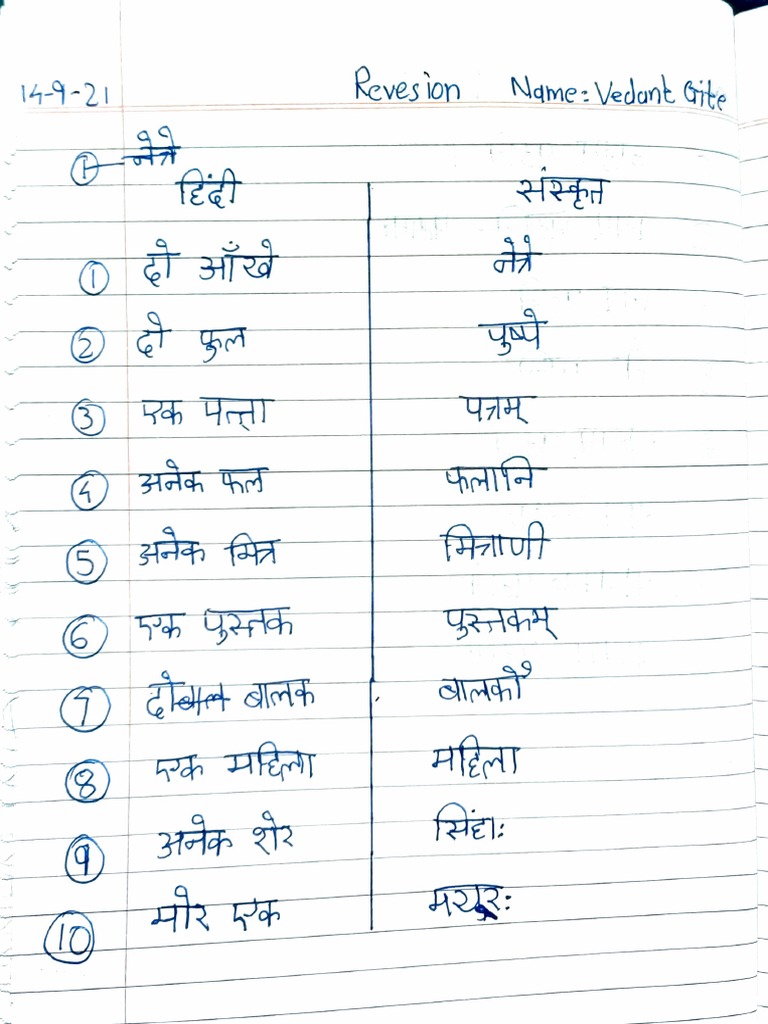 14-9-21 Revesion Name: Vedant Gite
① नेत्रे
हिंदी संस्कृत
① दो आँखे नेत्रे
② दो फुल पुष्पे
③ एक पत्त्ता पत्रम्
④ अनेक फल फलानि
⑤ अनेक मित्र मित्राणी
⑥ एक पुस्तक पुस्तकम्
⑦ दो बालक बालकौ
⑧ एक महिला महिला
⑨ अनेक शेर सिंहाः
⑩ मोर एक मयुरः